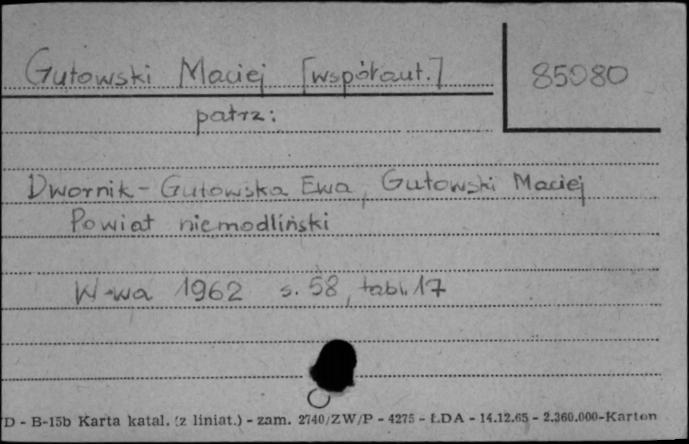 Gutowski Maciej [współaut.] 85080
patrz:
Dwornik-Gutowska Ewa, Gutowski Maciej
Powiat niemodliński
W-wa 1962 s. 58, tabl. 17
D - B-15b Karta katal. (z liniat.) - zam. 2740/ZW/P - 4275 - ŁDA - 14.12.65 - 2.360.000-Karton